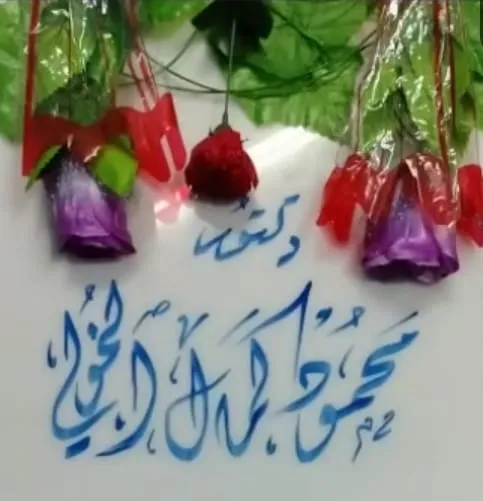 دكتور
محمود كمال الخولي